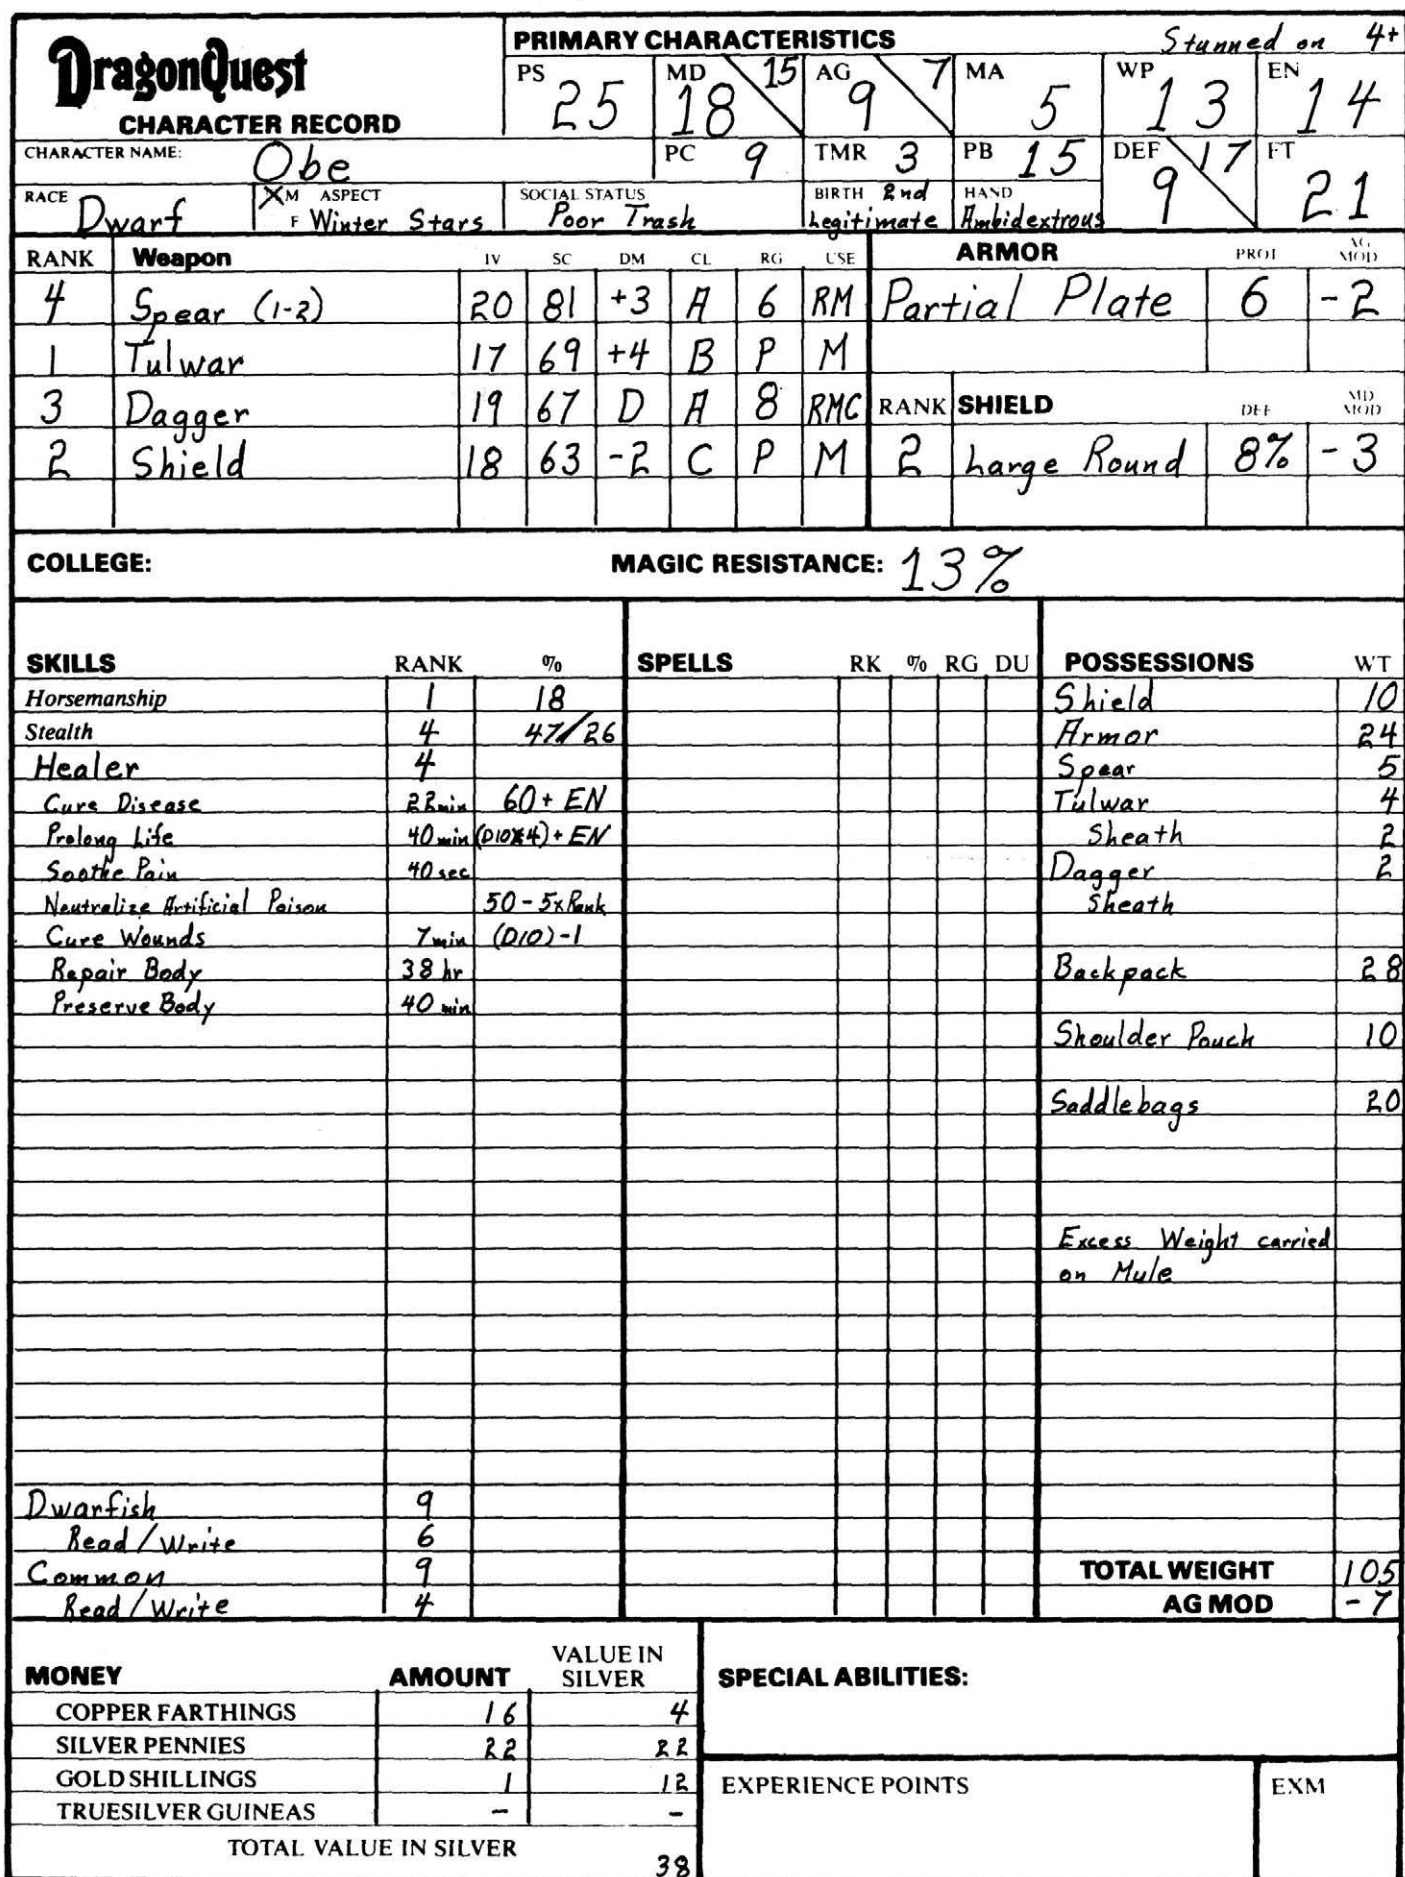 DragonQuest
CHARACTER RECORD
PRIMARY CHARACTERISTICS Stunned on 4+
PS 25 MD 18 15 AG 9 7 MA 5 WP 13 EN 14
CHARACTER NAME: Obe PC 9 TMR 3 PB 15 DEF 9 17 FT 21
RACE Dwarf X M F ASPECT Winter Stars SOCIAL STATUS Poor Trash BIRTH 2nd Legitimate HAND Ambidextrous
RANK Weapon IV SC DM CL RG USE
4 Spear (1-2) 20 81 +3 A 6 RM
1 Tulwar 17 69 +4 B P M
3 Dagger 19 67 D A 8 RMC
2 Shield 18 63 -2 C P M
ARMOR PROT AG MOD
Partial Plate 6 -2
RANK SHIELD DEF MD MOD
2 Large Round 8% -3
COLLEGE: MAGIC RESISTANCE: 13%
SKILLS RANK %
Horsemanship 1 18
Stealth 4 47/26
Healer 4
Cure Disease 22 min 60 + EN
Prolong Life 40 min (D10x4) + EN
Soothe Pain 40 sec
Neutralize Artificial Poison 50 - 5x Rank
Cure Wounds 7 min (D10)-1
Repair Body 38 hr
Preserve Body 40 min
Dwarfish 9
Read/Write 6
Common 9
Read/Write 4
SPELLS RK % RG DU
POSSESSIONS WT
Shield 10
Armor 24
Spear 5
Tulwar 4
Sheath 2
Dagger 2
Sheath
Backpack 28
Shoulder Pouch 10
Saddlebags 20
Excess Weight carried
on Mule
TOTAL WEIGHT 105
AG MOD -7
MONEY AMOUNT VALUE IN SILVER
COPPER FARTHINGS 16 4
SILVER PENNIES 22 22
GOLD SHILLINGS 1 12
TRUESILVER GUINEAS - -
TOTAL VALUE IN SILVER 38
SPECIAL ABILITIES:
EXPERIENCE POINTS EXM